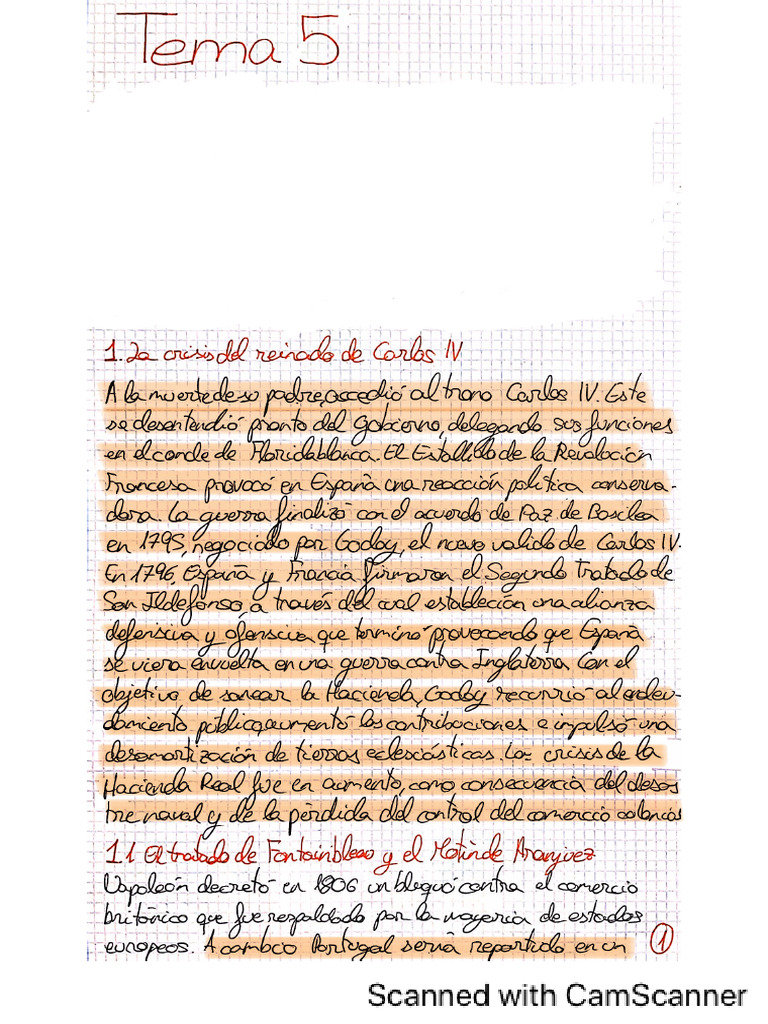 Tema 5
1. La crisis del reinado de Carlos IV
A la muerte de su padre, accedió al trono Carlos IV. Este
se desentendió pronto del gobierno, delegando sus funciones
en el conde de Floridablanca. El Estallido de la Revolución
Francesa provocó en España una reacción política conserva-
dora. La guerra finalizó con el acuerdo de Paz de Basilea
en 1795, negociado por Godoy, el nuevo valido de Carlos IV.
En 1796, España y Francia firmaron el Segundo Tratado de
San Ildefonso, a través del cual establecían una alianza
defensiva y ofensiva que terminó provocando que España
se viera envuelta en una guerra contra Inglaterra. Con el
objetivo de sanear la Hacienda, Godoy recurrió al endeu-
damiento público, aumentó las contribuciones e impulsó una
desamortización de tierras eclesiásticas. La crisis de la
Hacienda Real fue en aumento, como consecuencia del desas
tre naval y de la pérdida del control del comercio colonial
1.1 El tratado de Fontainbleau y el Motín de Aranjuez
Napoleón decretó en 1806 un bloqueo contra el comercio
británico que fue respaldado por la mayoría de estados
europeos. A cambio Portugal sería repartido en un
1
Scanned with CamScanner